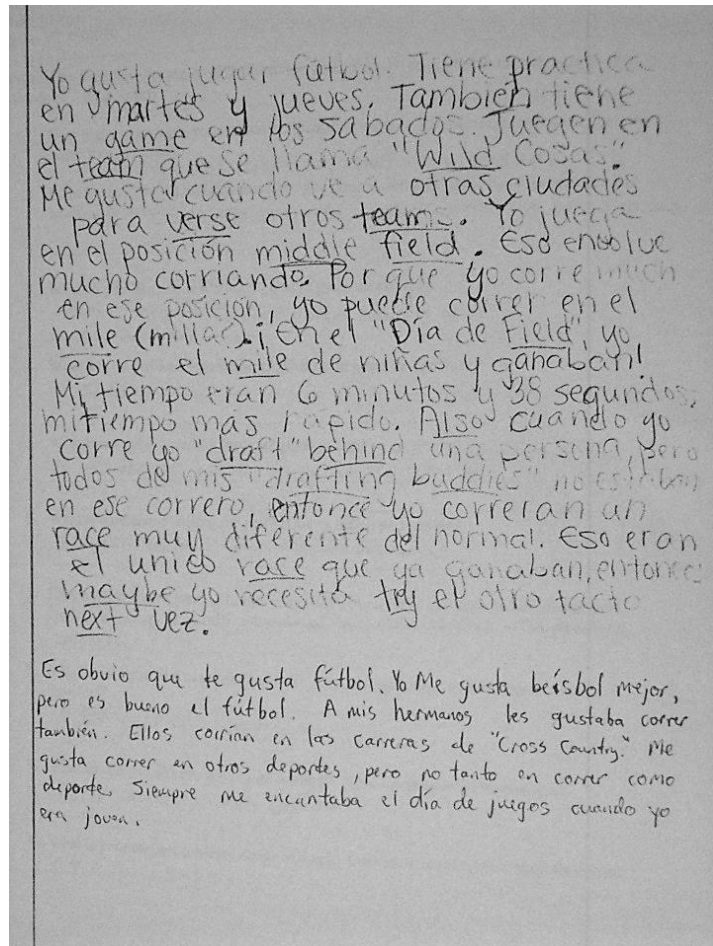 Yo gusta jugar fútbol. Tiene practica
en martes y jueves. También tiene
un game en los sabados. Juegen en
el team que se llama "Wild Cosas".
Me gusta cuando ve a otras ciudades
para verse otros teams. Yo juega
en el posición middle field. Eso envolue
mucho corriando. Por que yo corre much
en ese posición, yo puede correr en el
mile (millar). ¡En el "Día de Field", yo
corre el mile de niñas y ganaban!
Mi tiempo eran 6 minutos y 38 segundos,
mi tiempo más rápido. Also cuando yo
corre yo "draft" behind una persona, pero
todos de mis "drafting buddies" no estaban
en ese correro, entonce yo correran un
race muy diferente del normal. Eso eran
el unico race que ya ganaban, entonces
maybe yo necesita try el otro tacto
next vez.
Es obvio que te gusta fútbol. Yo Me gusta beísbol mejor,
pero es bueno el fútbol. A mis hermanos les gustaba correr
también. Ellos corrían en las carreras de "Cross Country." Me
gusta correr en otros deportes, pero no tanto en correr como
deporte. Siempre me encantaba el día de juegos cuando yo
era joven.